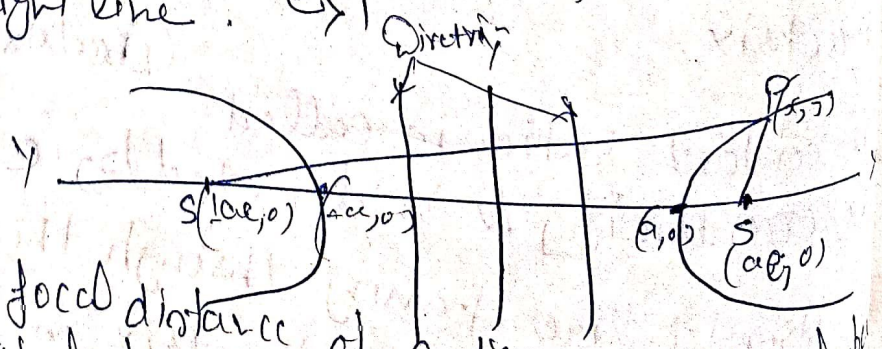 ight line.
Directrix
P(x,y)
Y
S(-ae,0)
(-a,0)
(a,0)
S
(ae,0)
focal distance
of